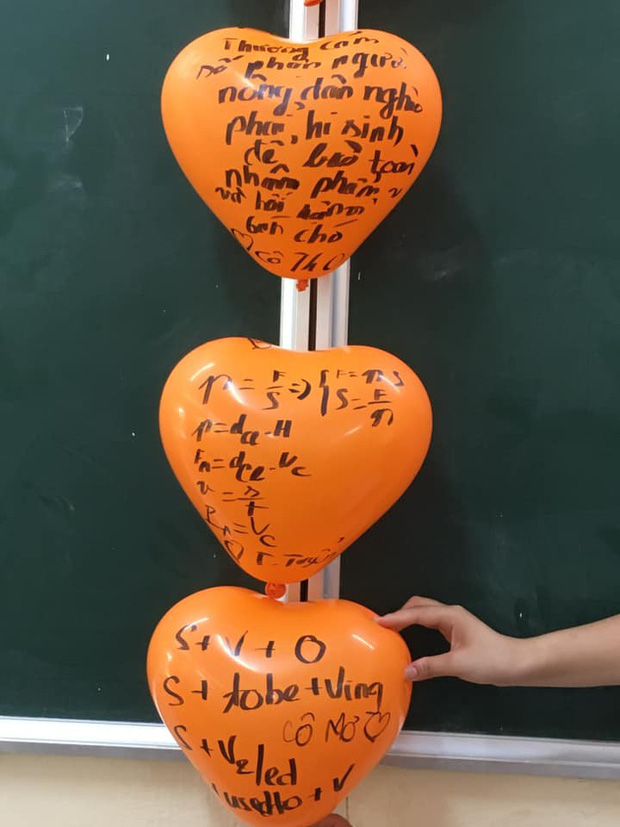 Thương cảm
số phận người
nông dân nghè
phải hi sinh
để bảo toàn
nhân phẩm
và hối hận vì
bán chó
♡ Cô Thơ
p = F/S => { F = p.S
S = F/p
p = d_cl . H
F_A = d_cl . V_c
v = s/t
= V_c
♡ T.
S + V + O
S + tobe + Ving
CÔ MƠ ♡
S + V2/ed
usedto + V